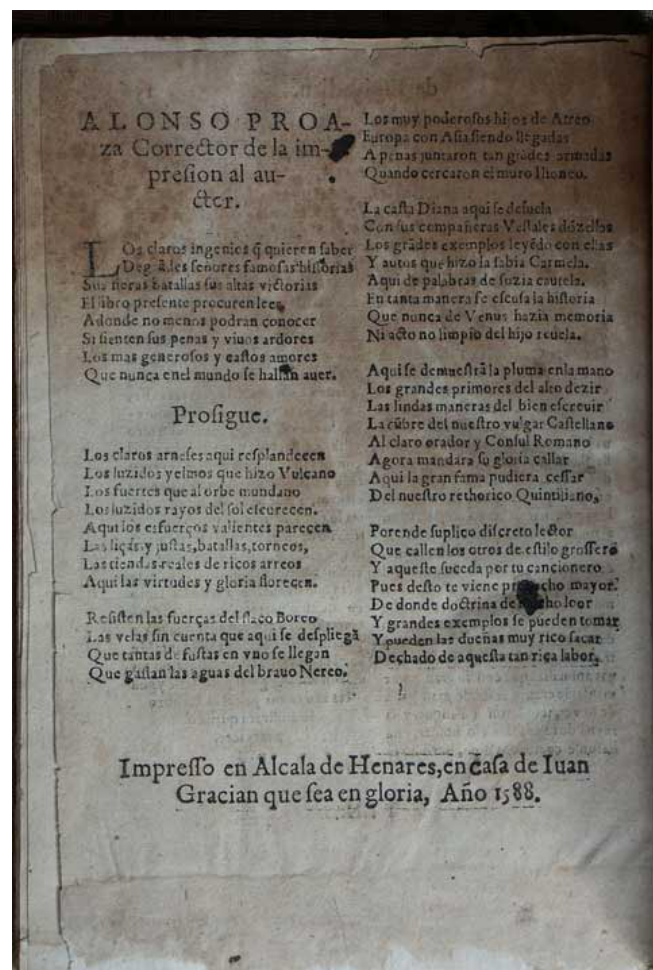 ALONSO PROA-
za Corrector de la im-
presion al au-
ctcr.
LOs claros ingenios q̃ quieren saber
De grãdes señores famosas historias
Sus fieras batallas sus altas victorias
El libro presente procuren leer
Adonde no menos podran conocer
Si sienten sus penas y viuos ardores
Los mas generosos y castos amores
Que nunca enel mundo se hallan auer.
Prosigue.
Los claros arneses aqui resplandecen
Los luzidos yelmos que hizo Vulcano
Los fuertes que al orbe mundano
Los luzidos rayos del sol escurecen.
Aqui los esfuerços valientes parecen
Las liças, y justas, batallas, torneos,
Las tiendas reales de ricos arreos
Aqui las virtudes y gloria florecen.
Resisten las fuerças del flaco Boreo
Las velas sin cuenta que aqui se despliegã
Que tantas de fustas en vno se llegan
Que gastan las aguas del brauo Nereo.
Los muy poderosos hijos de Atreo
Europa con Asia siendo llegadas
Apenas juntaron tan grãdes armadas
Quando cercaron el muro Ilioneo.
La casta Diana aqui se desuela
Con sus compañeras Vestales dõzellas
Los grãdes exemplos leyẽdo con ellas
Y autos que hizo la sabia Carmela.
Aqui de palabras de suzia cautela.
En tanta manera se escusa la historia
Que nunca de Venus hazia memoria
Ni acto no limpio del hijo reuela.
Aqui se demuestrã la pluma enla mano
Los grandes primores del alto dezir
Las lindas maneras del bien escreuir
La cũbre del nuestro vulgar Castellano
Al claro orador y Consul Romano
Agora mandara su gloria callar
Aqui la gran fama pudiera cessar
Del nuestro rethorico Quintiliano,
Porende suplico discreto lector
Que callen los otros de estilo grossero
Y aqueste suceda por tu cancionero
Pues desto te viene prouecho mayor.
De donde doctrina de mucho loor
Y grandes exemplos se pueden tomar
Y pueden las dueñas muy rico sacar
Dechado de aquesta tan rica labor.
Impresso en Alcala de Henares, en casa de Iuan
Gracian que sea en gloria, Año 1588.